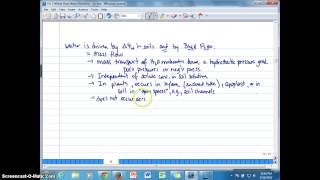 Water is driven by ΔΨw in soils and by Bulk Flow.
= Mass flow
→ mass transport of H2O molecules down a hydrostatic pressure grad.
pressure or neg. press.
→ Independent of solute conc. in soil solution
→ In plants, occurs in xylem, (enclosed tubes), apoplast, or in
soil in "open spaces", e.g., soil channels
→ Does not occur
SCREENCAST-O-MATIC.com